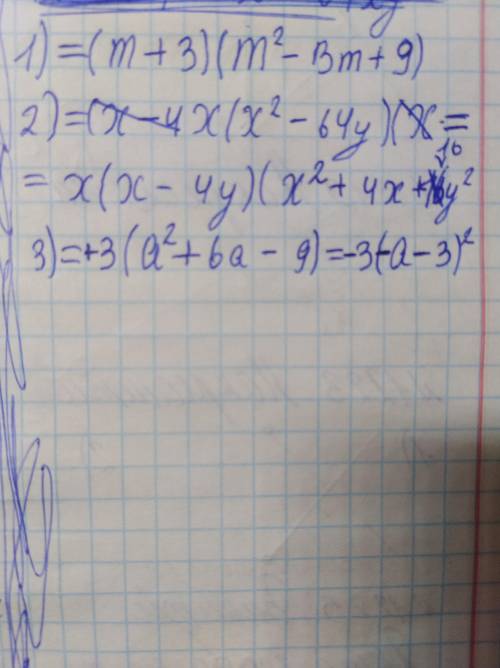 1) =(m + 3)(m² - 3m + 9)
2) = x(x² - 64y) =
= x(x - 4y)(x² + 4x + 16y²
3) = +3(a² + 6a - 9) = -3(-a - 3)²